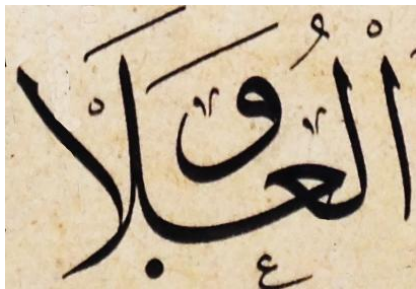 الْعُلَاْ وَ